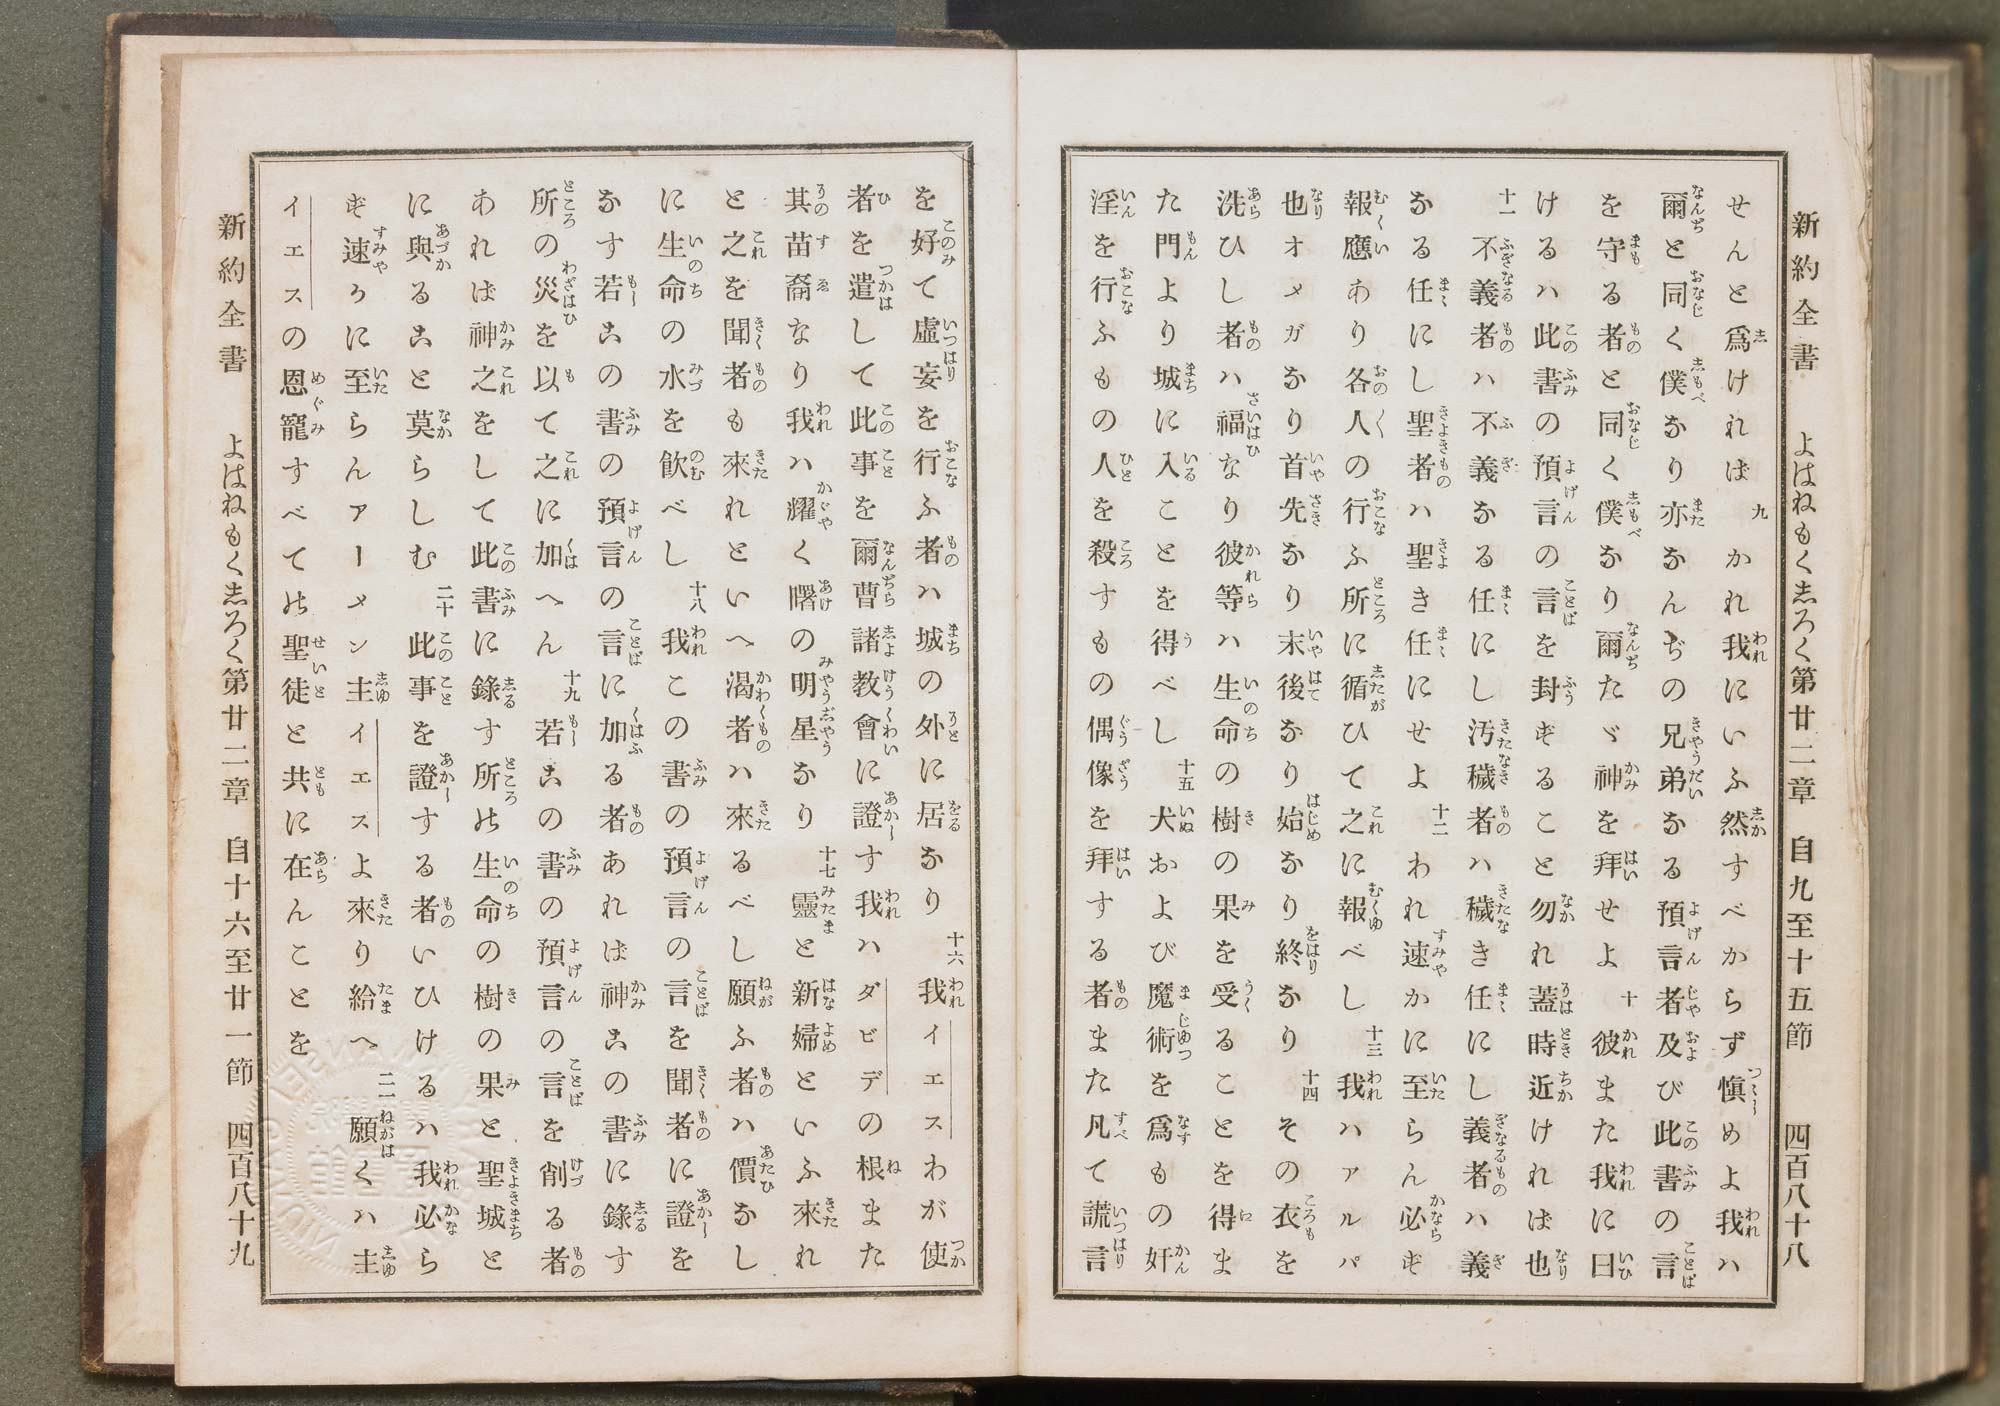 新約全書 よはねもく志ろく第廿二章 自九至十五節 四百八十八
せんと爲ければ 九 かれ我にいふ然すべからず愼めよ我ハ
爾と同く僕なり亦なんぢの兄弟なる預言者及び此書の言
を守る者と同く僕なり爾たゞ神を拜せよ 十 彼また我に曰
けるハ此書の預言の言を封ずること勿れ蓋時近ければ也
十一 不義者ハ不義なる任にし汚穢者ハ穢き任にし義者ハ義
なる任にし聖者ハ聖き任にせよ 十二 われ速かに至らん必ず
報應あり各人の行ふ所に循ひて之に報べし 十三 我ハアルパ
也オメガなり首先なり末後なり始なり終なり 十四 その衣を
洗ひし者ハ福なり彼等ハ生命の樹の果を受ることを得ま
た門より城に入ことを得べし 十五 犬および魔術を爲もの奸
淫を行ふもの人を殺すもの偶像を拜する者また凡て謊言
を好て虛妄を行ふ者ハ城の外に居なり 十六 我イエスわが使
者を遣して此事を爾曹諸教會に證す我ハダビデの根また
其苗裔なり我ハ耀く曙の明星なり 十七 靈と新婦といふ來れ
と之を聞者も來れといへ渴者ハ來るべし願ふ者ハ價なし
に生命の水を飮べし 十八 我この書の預言の言を聞者に證を
なす若この書の預言の言に加る者あれば神この書に錄す
所の災を以て之に加へん 十九 若この書の預言の言を削る者
あれば神之をして此書に錄す所の生命の樹の果と聖城と
に與ること莫らしむ 二十 此事を證する者いひけるハ我必ら
ず速かに至らんアーメン主イエスよ來り給へ 二一 願くハ主
イエスの恩寵すべての聖徒と共に在んことを
新約全書 よはねもく志ろく第廿二章 自十六至廿一節 四百八十九